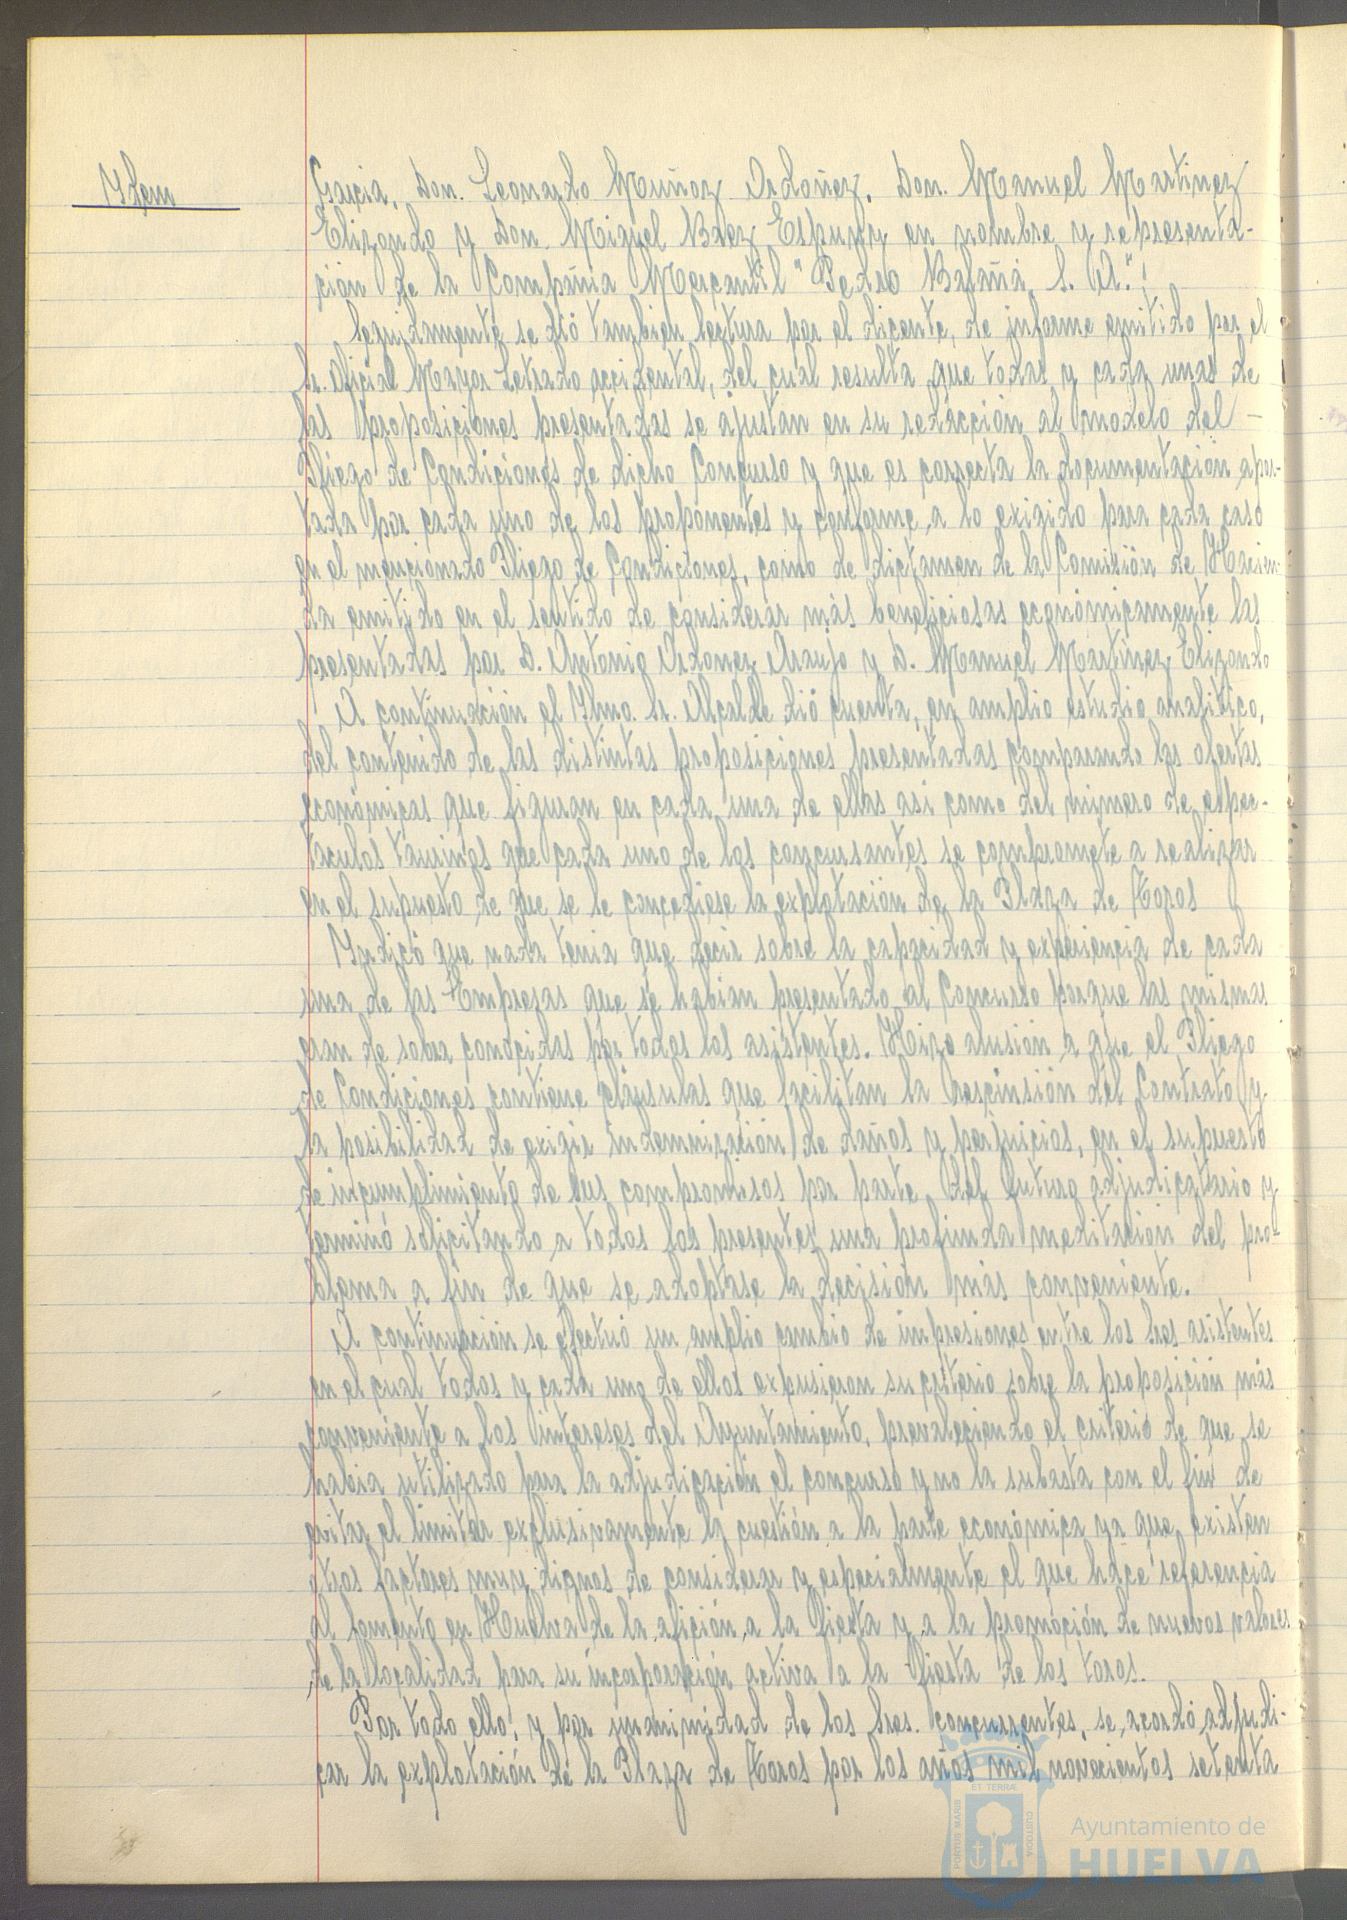 Ydem
García, Don. Leonardo Muñoz Ordoñez, Don. Manuel Martinez
Elizondo y Don. Miguel Baez Espuny en nombre y representa-
ción de la Compañia Mercantil "Pedro Balañá, S. A.";
Seguidamente se dió tambien lectura por el dicente, de informe emitido por el
Sr. Oficial Mayor Letrado accidental, del cual resulta que todas y cada unas de
las proposiciones presentadas se ajustan en su redacción al modelo del -
Pliego de Condiciones de dicho Concurso y que es correcta la documentación apor-
tada por cada uno de los proponentes y conforme a lo exigido para cada caso
en el mencionado Pliego de Condiciones, como de dictamen de la Comisión de Hacien-
da emitido en el sentido de considerar más beneficiosas económicamente las
presentadas por D. Antonio Ordonez Araujo y D. Manuel Martinez Elizondo
A continuación el Ylmo. Sr. Alcalde dió cuenta, en amplio estudio analitico,
del contenido de las distintas proposiciones presentadas comparando las ofertas
económicas que figuran en cada una de ellas asi como del número de espec-
taculos taurinos que cada uno de los concursantes se compromete a realizar
en el supuesto de que se le concediese la explotación de la Plaza de Toros
Yndicó que nada tenia que decir sobre la capacidad y experiencia de cada
una de las Empresas que se habian presentado al Concurso porque las mismas
eran de sobra conocidas por todos los asistentes. Hizo alusión a que el Pliego
de Condiciones contiene cláusulas que facilitan la rescinsión del Contrato y
la posibilidad de exigir indemnización de daños y perjuicios, en el supuesto
de incumplimiento de sus compromisos por parte del futuro adjudicatario y
terminó solicitando a todos los presentes una profunda meditación del pro-
blema a fin de que se adoptase la decisión más conveniente.
A continuación se efectuó un amplio cambio de impresiones entre los Sres asistentes
en el cual todos y cada uno de ellos expusieron su criterio sobre la proposición más
conveniente a los intereses del Ayuntamiento, prevaleciendo el criterio de que se
habia utilizado para la adjudicación el concurso y no la subasta con el fin de
evitar el limitar exclusivamente la cuestión a la parte económica ya que existen
otros factores muy dignos de considerar y especialmente el que hace referencia
al fomento en Huelva de la afición a la fiesta y a la promoción de nuevos valores
de la localidad para su incorporación activa a la fiesta de los toros.
Por todo ello, y por unanimidad de los Sres. concurrentes, se acordó adjudi-
car la explotación de la Plaza de Toros por los años mil novecientos setenta
ET TERRÆ
PORTUS MARIS
CUSTODIA
Ayuntamiento de
HUELVA